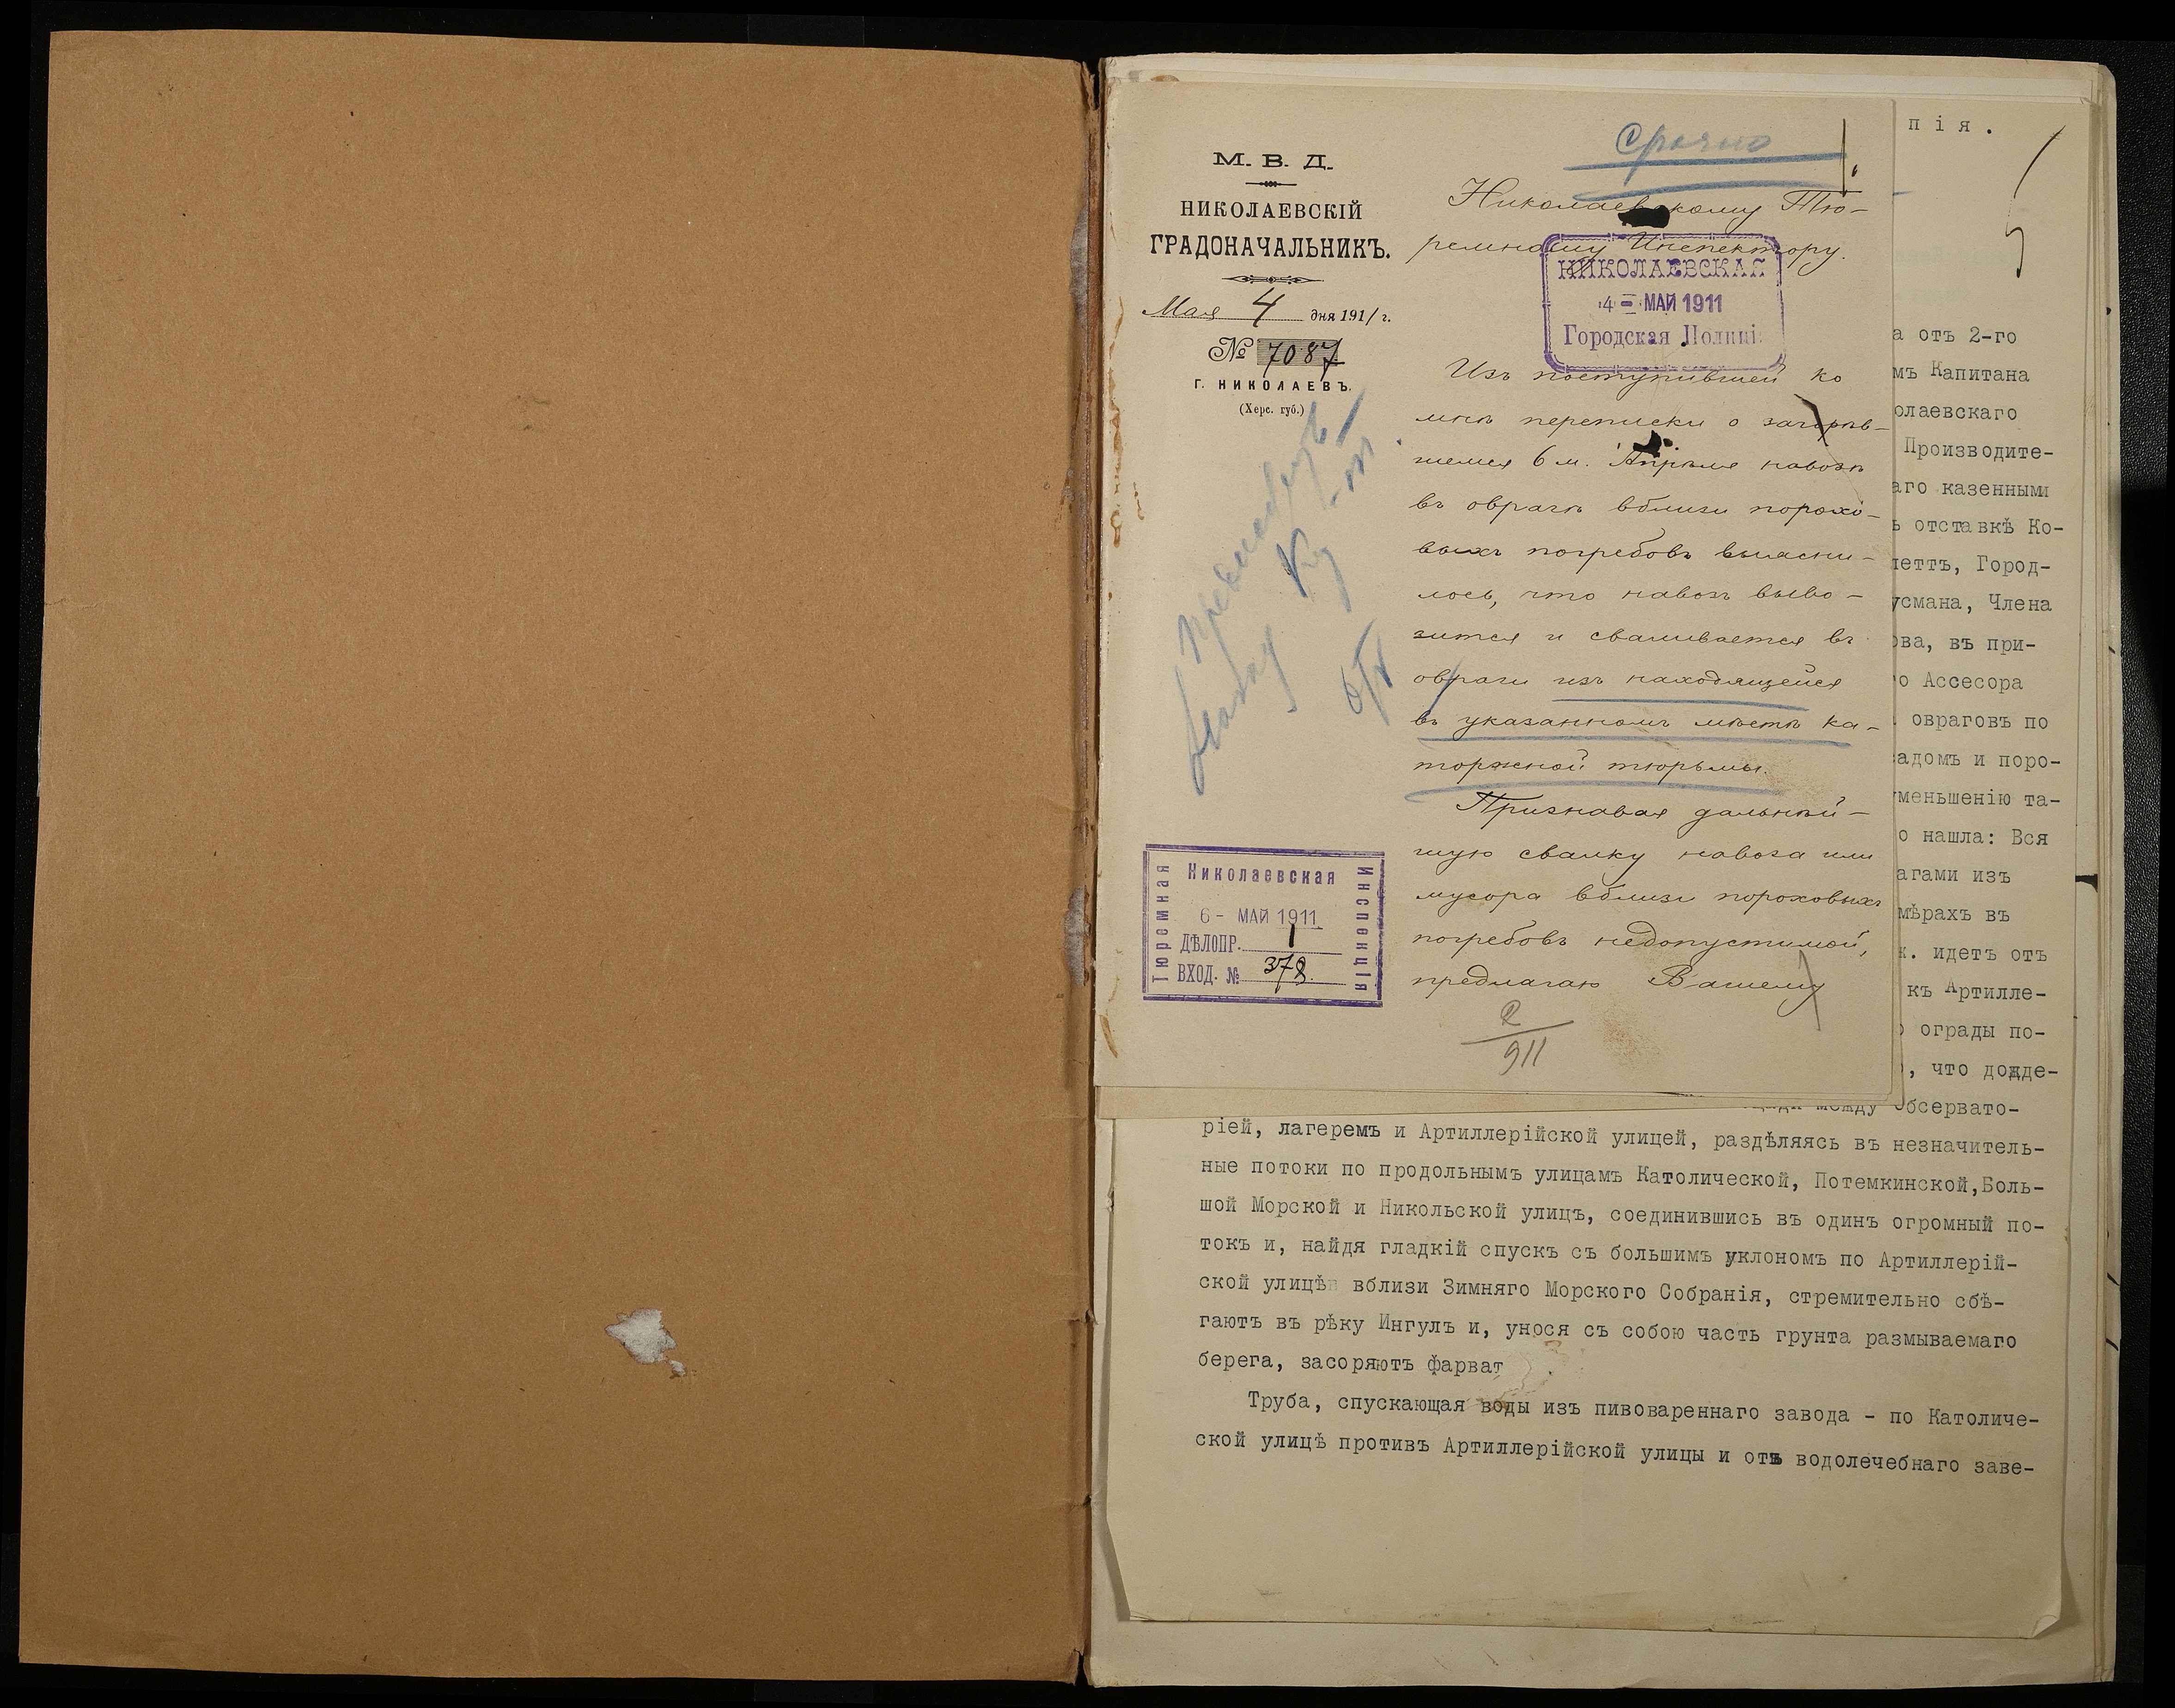 М. В. Д.
НИКОЛАЕВСКІЙ
ГРАДОНАЧАЛЬНИКЪ.
Мая 4 дня 1911 г.
№ 7087
Г. НИКОЛАЕВЪ.
(Херс. губ.)
Срочно
1.
Николаевскому Тю-
ремному Инспектору.
НИКОЛАЕВСКАЯ
4 - МАЙ 1911
Городская Полиці
Изъ поступившей ко
мнѣ переписки о загорѣв-
шемся 6 м. Апрѣля навозѣ
въ оврагѣ вблизи порохо-
выхъ погребовъ выясни-
лось, что навозъ выво-
зится и сваливается въ
овраги изъ находящейся
въ указанномъ мѣстѣ ка-
торжной тюрьмы.
Признавая дальнѣй-
шую свалку навоза или
мусора вблизи пороховыхъ
погребовъ недопустимой,
предлагаю Вашему
2
911
Тюремная
Николаевская
Инспекція
6 - МАЙ 1911
ДѢЛОПР. 1
ВХОД. № 378.
пія.
5
а отъ 2-го
мъ Капитана
олаевскаго
Производите-
аго казенными
ъ отставкѣ Ко-
леттъ, Город-
усмана, Члена
ова, въ при-
о Ассесора
овраговъ по
адомъ и поро-
меньшенію та-
о нашла: Вся
агами изъ
мѣрахъ въ
к. идетъ отъ
къ Артилле-
о ограды по-
, что дожде-
между Обсервато-
ріей, лагеремъ и Артиллерійской улицей, раздѣляясь въ незначитель-
ные потоки по продольнымъ улицамъ Католической, Потемкинской,Боль-
шой Морской и Никольской улицъ, соединившись въ одинъ огромный по-
токъ и, найдя гладкій спускъ съ большимъ уклономъ по Артиллерій-
ской улицѣ вблизи Зимняго Морского Собранія, стремительно сбѣ-
гаютъ въ рѣку Ингулъ и, унося съ собою часть грунта размываемаго
берега, засоряютъ фарват
Труба, спускающая воды изъ пивовареннаго завода - по Католиче-
ской улицѣ противъ Артиллерійской улицы и отъ водолечебнаго заве-